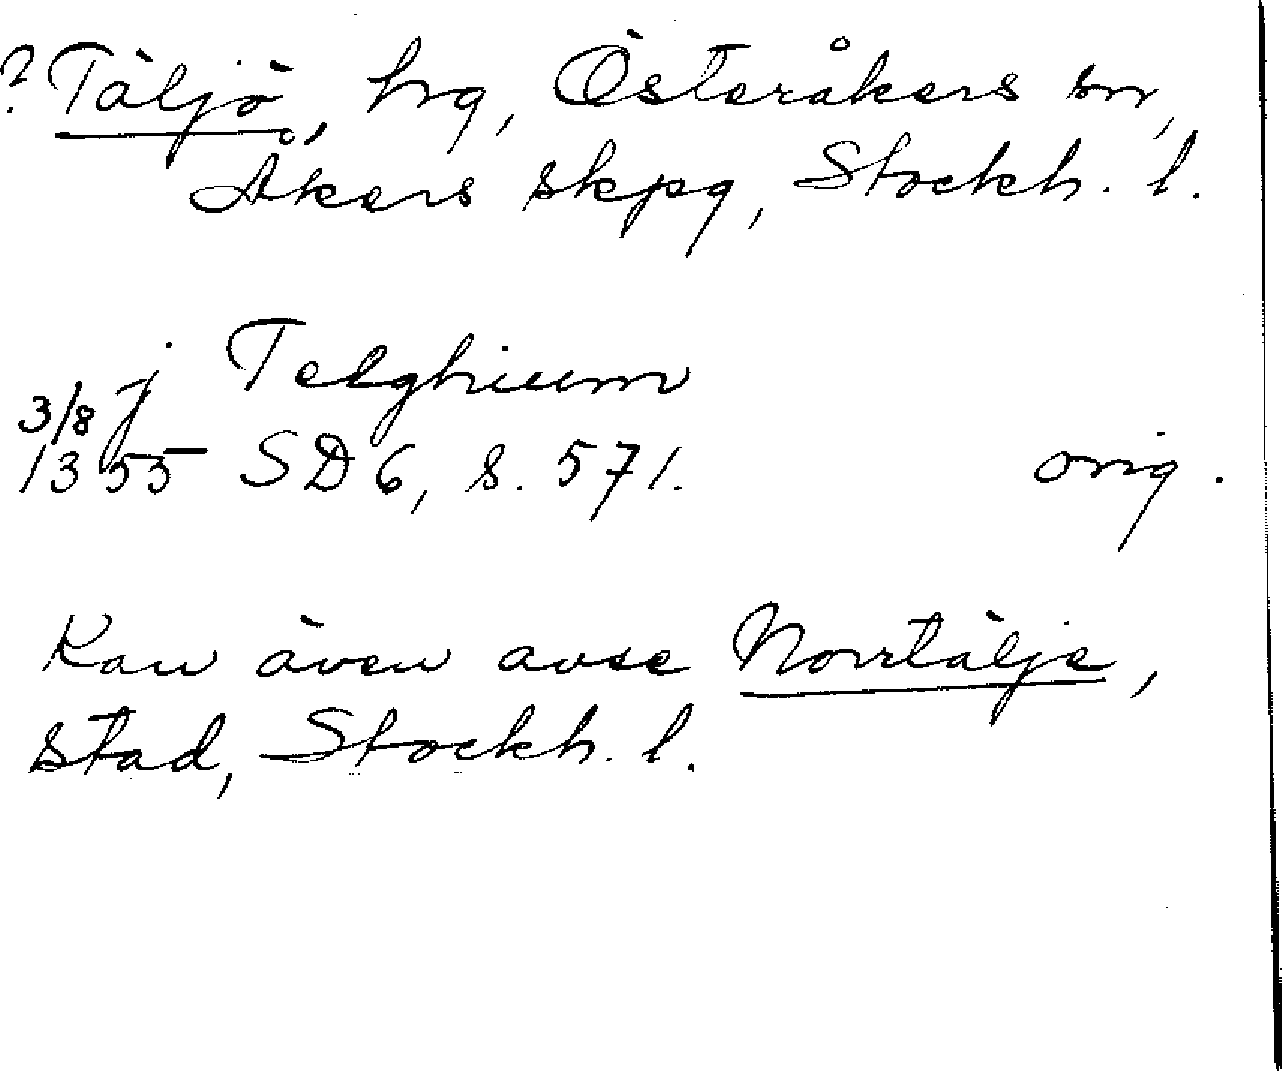 ? Täljö, hrg, Österåkers sn,
Åkers skpg, Stockh. l.
j Telghium
3/8
1355 SD 6, s. 571. orig.
Kan även avse Norrtälje,
stad, Stockh. l.